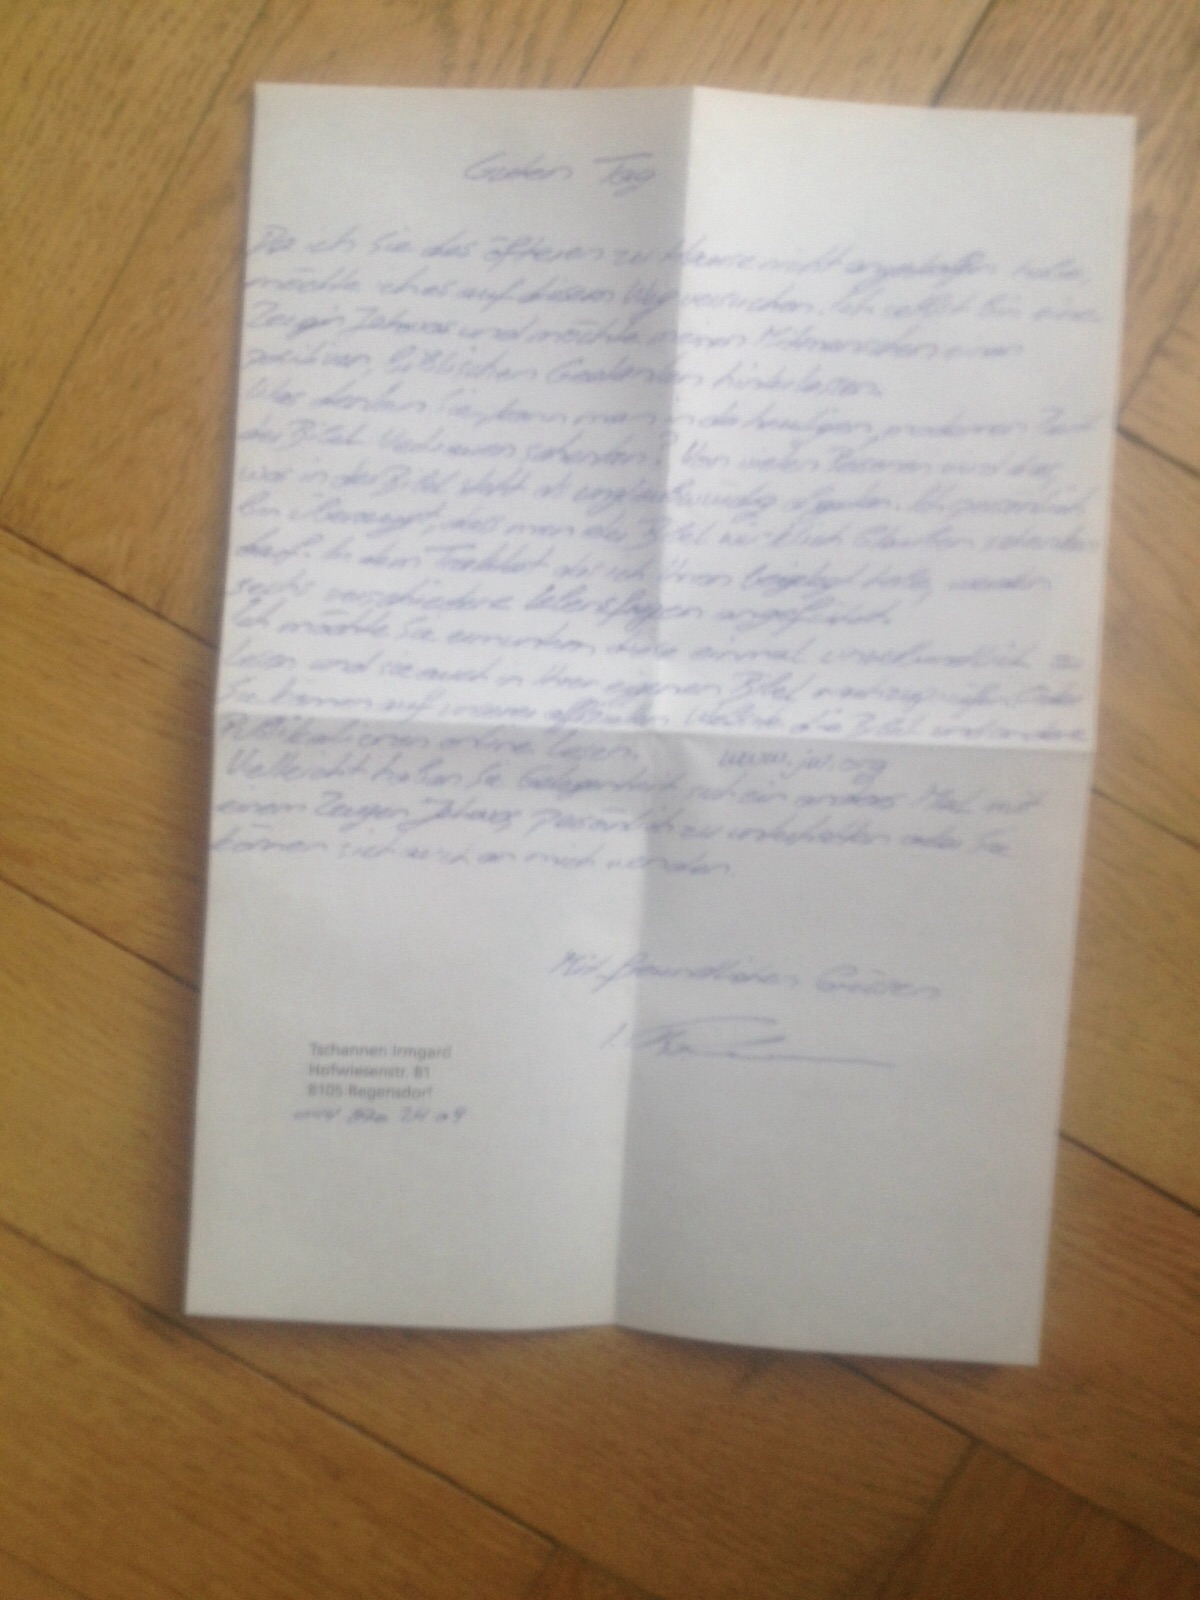 Guten Tag
Da ich Sie des öfteren zu Hause nicht angetroffen habe,
möchte ich es auf diesem Weg versuchen. Ich selbst bin eine
Zeugin Jehovas und möchte meinen Mitmenschen einen
positiven, biblischen Gedanken hinterlassen.
Was denken Sie, kann man in der heutigen, modernen Zeit
der Bibel Vertrauen schenken? Von vielen Personen wird das,
was in der Bibel steht als unglaubwürdig abgetan. Ich persönlich
bin überzeugt, dass man der Bibel wirklich Glauben schenken
darf. In dem Traktat das ich Ihnen beigelegt habe, werden
sechs verschiedene Lebensfragen angeführt.
Ich möchte Sie ermuntern diese einmal unverbindlich zu
lesen und sie auch in Ihrer eigenen Bibel nachzuprüfen. Oder
Sie können auf unserer offiziellen Website die Bibel und andere
Publikationen online lesen. www.jw.org
Vielleicht haben Sie Gelegenheit sich ein anderes Mal mit
einem Zeugen Jehovas persönlich zu unterhalten oder Sie
können sich auch an mich wenden.
Mit freundlichen Grüssen
Tschannen Irmgard
Hofwiesenstr. 81
8105 Regensdorf